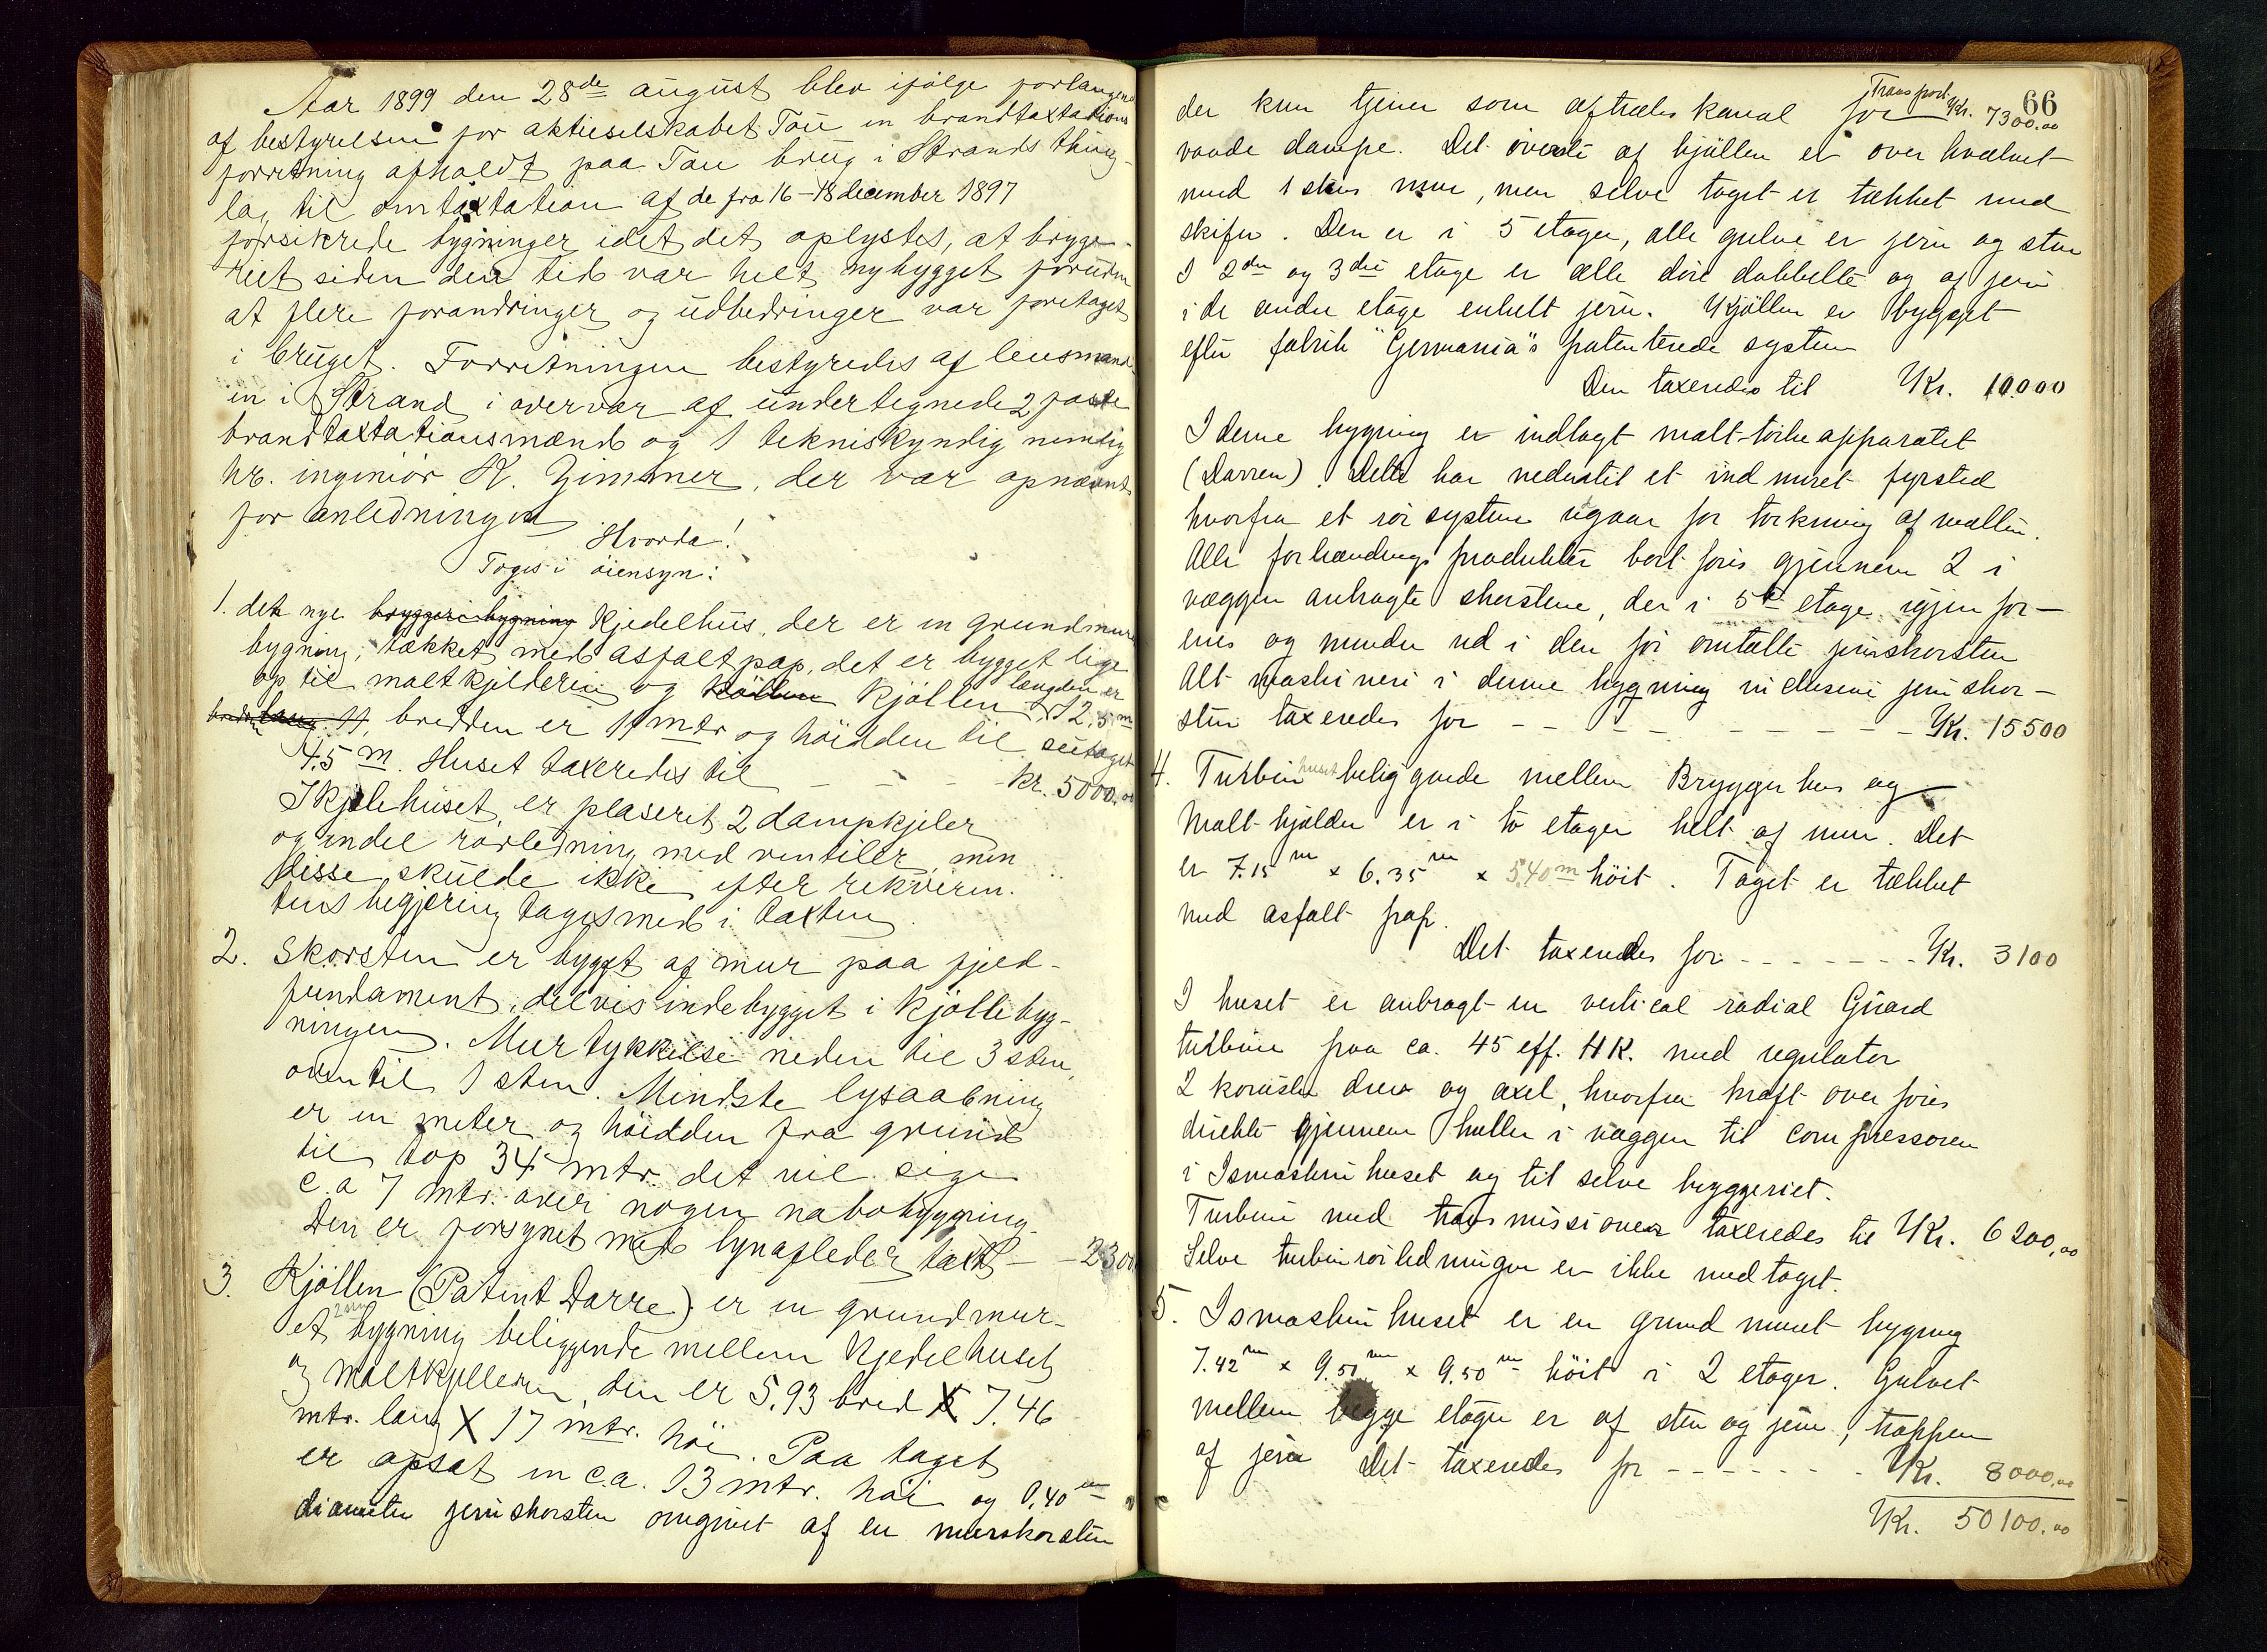 Aar 1899 den 28de august blev ifølge forlangende
af bestyrelsen for aktieselskabet Tau en brandtaxtations
forretning afholdt paa Tau brug i Strands thing-
lag til omtaxtation af de fra 16-18 december 1897
forsikrede bygninger idet det oplystes, at brygge-
riet siden den tid var helt nybygget foruden
at flere forandringer og udbedringer var foretaget
i bruget. Forretningen bestyredes af lensmand-
en i Strand i overvær af undertegnede 2 faste
brandtaxtationsmænd og 1 tekniskyndig nemlig
hr. ingeniør K. Zimmer, der var opnævnt
for anledningen
Hvorda!
Toges i øiensyn:
1. det nye bryggeribygning Kjedelhus, der er en grundmuret
bygning, tækket med asfaltpap, det er bygget lige
op til maltkjelderen og kjøllen længden er
12.5 m
lang 11, bredden er 11 mtr og høidden til
4.5 m. Huset taxeredes til - - - kr. 5000.00
I kjelehuset er plaseret 2 dampkjeler
og endel rørledning med ventiler, men
disse skulde ikke efter rekviren-
tens begjering tages med i taxten
2. Skorsten er bygget af mur paa fjeld-
fundament, delvis indebygget i kjøllebyg-
ningen. Murtykkelse neden til 3 sten,
oventil 1 sten. Mindste lysaabning
er en meter og høidden fra grund
til top 34 mtr. det vil sige
c.a 7 mtr. over nogen nabobygning.
Den er forsynet med lynafleder taxt - - 2300
3. Kjøllen (Patent Darre) er en grundmur-
et bygning beliggende mellem Kjedelhuset
og Maltkjelleren, den er 5,93 bred X 7.46
mtr. lang X 17 mtr. høi. Paa taget
er opsat en c.a. 13 mtr. høi og 0,40 m
diameter jernskorsten omgivet af en murskorsten
66
der kun tjener som aftræks kanal for Transport Kr. 7300.00
vaade dampe. Det øverste af kjøllen er over hvælvet
med 1 stens mur, men selve taget er tækket med
skifer. Den er i 5 etager, alle gulve er jern og sten
I 2den og 3die etage er alle døre dobbelte og af jern
i de andre etage enkelt jern. Kjøllen er bygget
efter fabrik "Germania"s patenterede system
Den taxeredes til Kr. 10.000
I denne bygning er indlagt malt-tørkeapparatet
(Darren). Dette har nedentil et indmuret fyrsted
hvorfra et rør system udgaar for tørkning af malten.
Alle forbrændings produkter bort føres gjennem 2 i
væggen anbragte skorstene, der i 5te etage igjen for-
enes og munder ud i den før omtalte jernskorsten
Alt maskineri i denne bygning inclusive jern skor-
sten taxeredes for - - - - - - - Kr. 15500
4. Turbinhuset beliggende mellem Bryggerhus og
Malt-kjælder er i to etager helt af mur. Det
er 7.15 m x 6.35 m x 5,40 m høit. Taget er tækket
med asfalt pap.
Det taxeredes for - - - - - - - Kr. 3100
I huset er anbragt en vertical radial Girard
turbine paa ca. 45 eff. HK. med regulator
2 koniske drev og axel, hvorfra kraft over føres
direkte gjennem huller i væggen til compressoren
i Ismaskinhuset og til selve bryggeriet.
Turbin med transmissioner taxeredes til Kr. 6200,00
Selve turbinrørledningen er ikke medtaget.
5. Ismaskinhuset er en grundmuret bygning
7.42 m x 9.51 m x 9,50 m høit i 2 etager. Gulvet
mellem begge etager er af sten og jern, trappen
af jern Det taxeredes for - - - - - - Kr. 8000,00
Kr. 50100.00